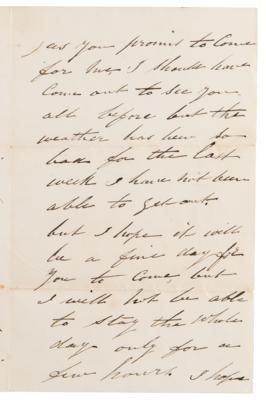 as you promist to come
for me. I should have
come out to see you
all before but the
weather has been so
bad for the last
week I have not been
able to get out
but I hope it will
be a fine day for
you to come, but
I will not be able
to stay the whole
day only for a
few hours I hope